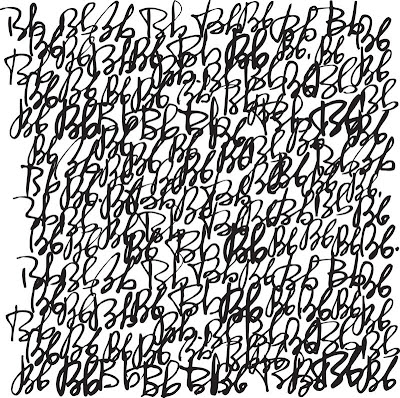 Bb Bb Bb Bb Bb Bb Bb Bb Bb
Bb Bb Bb Bb Bb Bb Bb Bb Bb
Bb Bb Bb Bb Bb Bb Bb Bb Bb Bb
Bb Bb Bb Bb Bb Bb Bb Bb Bb
Bb Bb Bb Bb Bb Bb Bb Bb Bb Bb
Bb Bb Bb Bb Bb Bb Bb Bb Bb
Bb Bb Bb Bb Bb Bb Bb Bb Bb
Bb Bb Bb Bb Bb Bb Bb Bb Bb Bb
Bb Bb Bb Bb Bb Bb Bb Bb Bb
Bb Bb Bb Bb Bb Bb Bb Bb Bb
Bb Bb Bb Bb Bb Bb Bb Bb Bb Bb
Bb Bb Bb Bb Bb Bb Bb Bb Bb